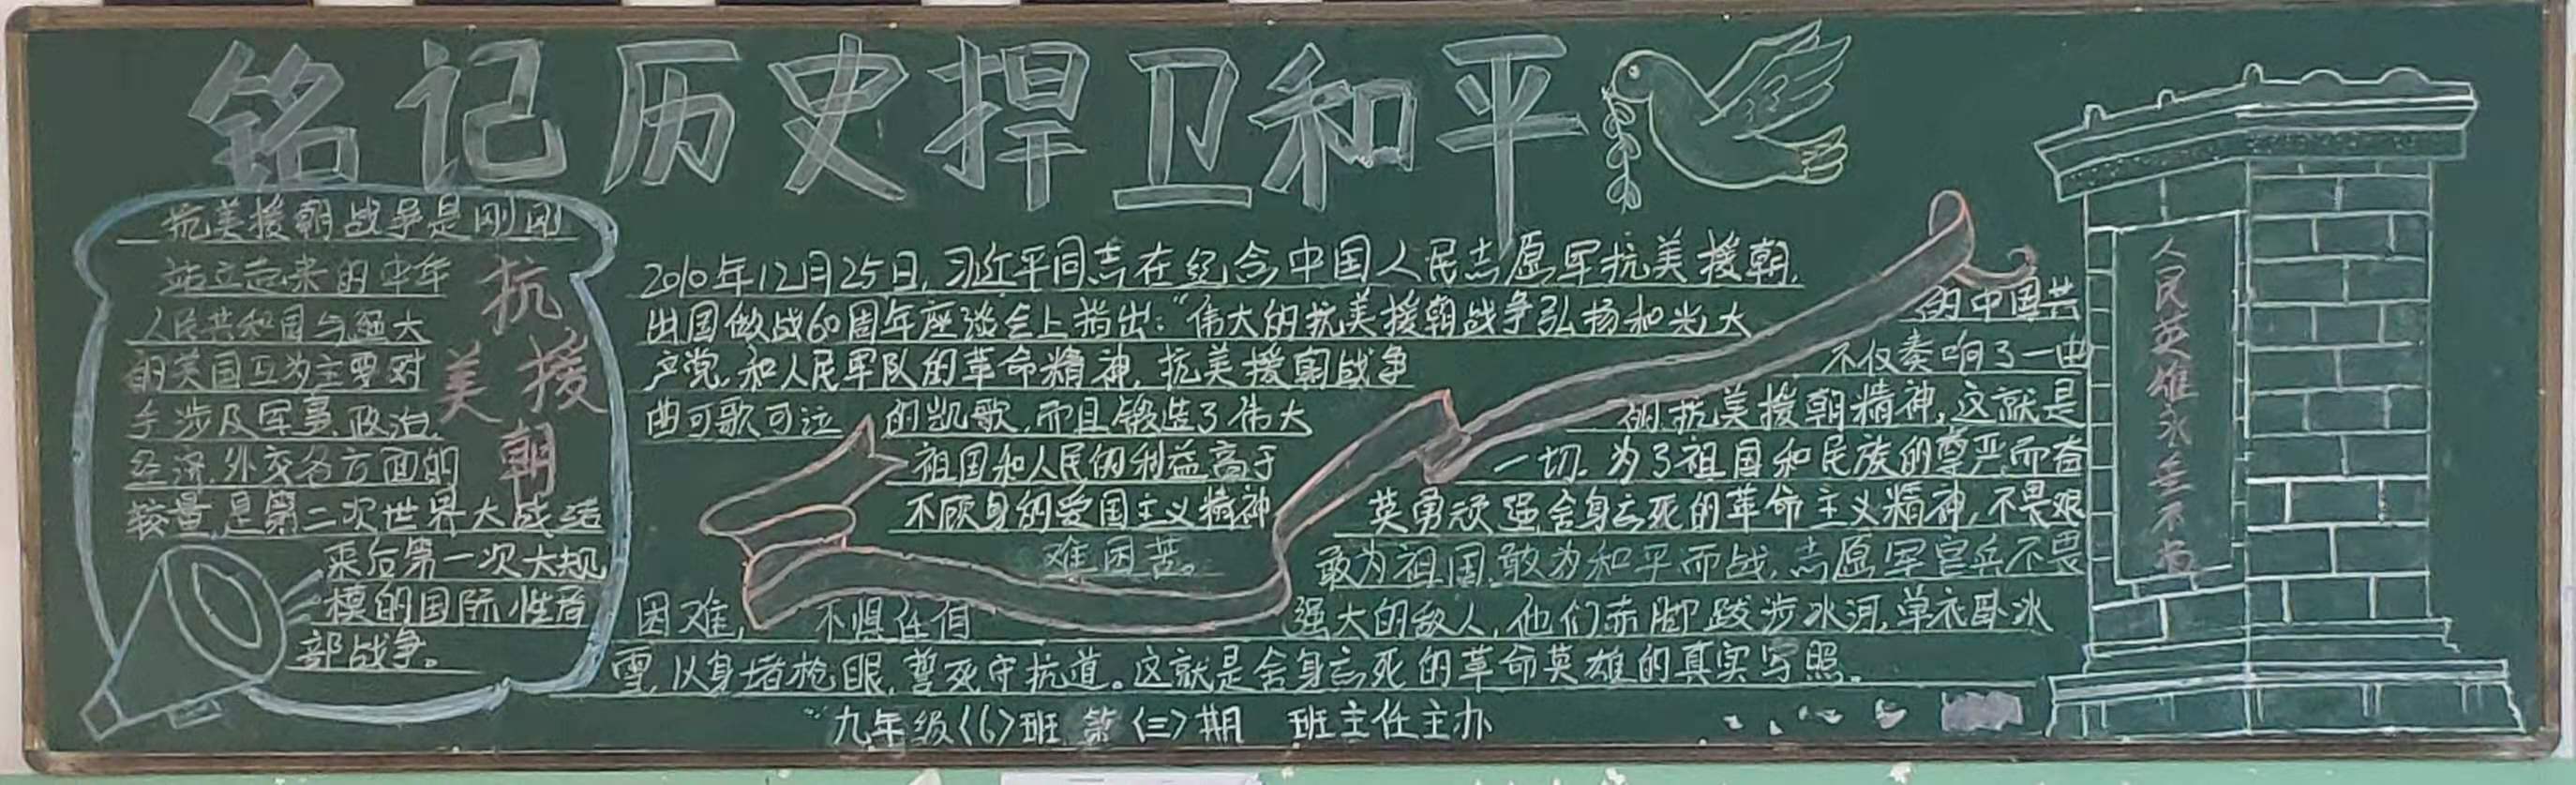 铭记历史捍卫和平
抗美援朝战争是刚刚
站立起来的中华
人民共和国与强大
的美国互为主要对
手涉及军事,政治,
经济,外交各方面的
较量,是第二次世界大战结
束后第一次大规
模的国际性
部战争。
抗美援朝
2010年12月25日,习近平同志在纪念中国人民志愿军抗美援朝,
出国做战60周年座谈会上指出:“伟大的抗美援朝战争弘扬和光大 的中国共
产党,和人民军队的革命精神,抗美援朝战争 不仅奏响了一曲
曲可歌可泣 的凯歌,而且锻造了伟大 的抗美援朝精神,这就是
祖国和人民的利益高于 一切,为了祖国和民族的尊严而奋
不顾身的爱国主义精神 英勇顽强舍身忘死的革命主义精神,不畏艰
难困苦。 敢为祖国,敢为和平而战,志愿军官兵不畏
困难, 不惧任何 强大的敌人,他们赤脚跋涉冰河,单衣卧冰
雪,以身堵枪眼,誓死守抗道。这就是舍身忘死的革命英雄的真实写照。
人民英雄永垂不朽
九年级〈6〉班 第〈三〉期 班主任主办